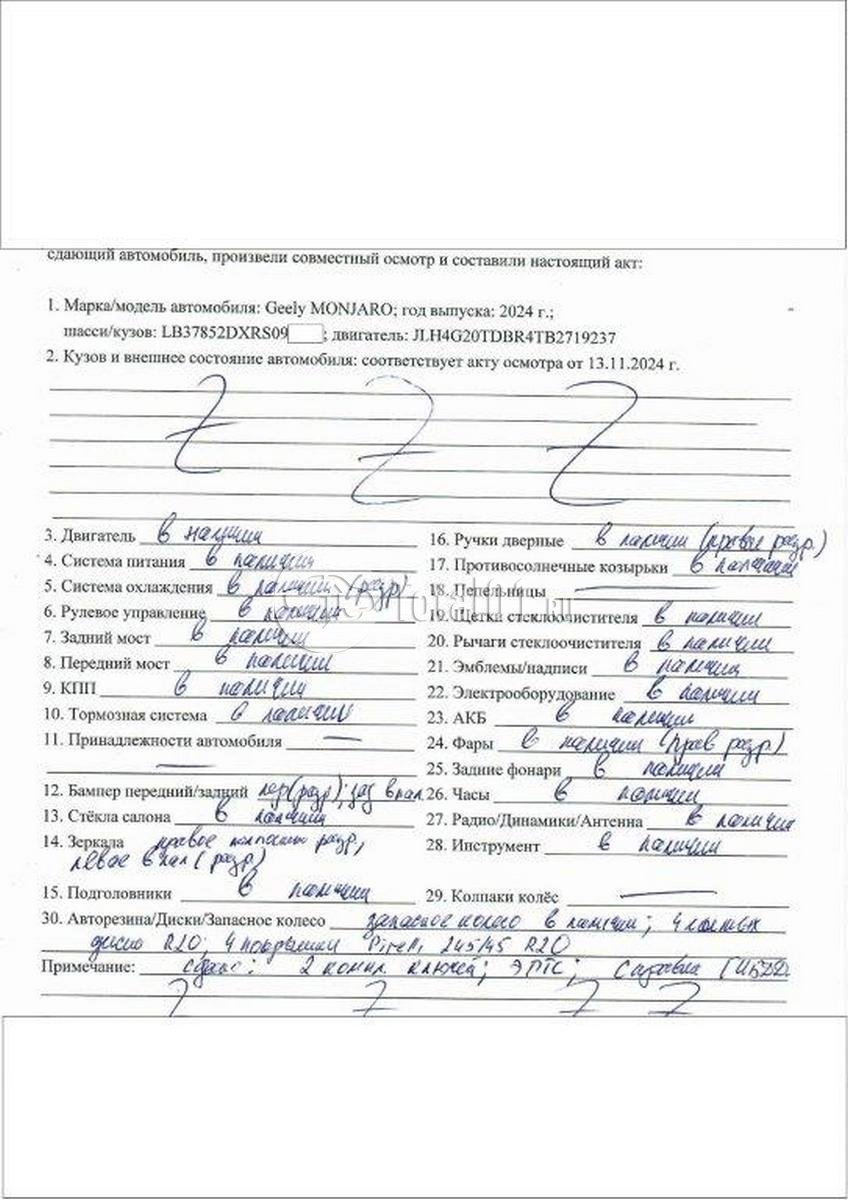 сдающий автомобиль, произвели совместный осмотр и составили настоящий акт:
1. Марка/модель автомобиля: Geely MONJARO; год выпуска: 2024 г.;
шасси/кузов: LB37852DXRS09 ; двигатель: JLH4G20TDBR4TB2719237
2. Кузов и внешнее состояние автомобиля: соответствует акту осмотра от 13.11.2024 г.
3. Двигатель в наличии
4. Система питания в наличии
5. Система охлаждения в наличии (разр)
6. Рулевое управление в наличии
7. Задний мост в наличии
8. Передний мост в наличии
9. КПП в наличии
10. Тормозная система в наличии
11. Принадлежности автомобиля —
—
12. Бампер передний/задний пер(разр); зад в нал
13. Стёкла салона в наличии
14. Зеркала правое полностью разр,
левое в нал (разр)
15. Подголовники в наличии
16. Ручки дверные в наличии (правые разр.)
17. Противосолнечные козырьки в наличии
18. Пепельницы —
19. Щетки стеклоочистителя в наличии
20. Рычаги стеклоочистителя в наличии
21. Эмблемы/надписи в наличии
22. Электрооборудование в наличии
23. АКБ в наличии
24. Фары в наличии (прав разр)
25. Задние фонари в наличии
26. Часы в наличии
27. Радио/Динамики/Антенна в наличии
28. Инструмент в наличии
29. Колпаки колёс —
30. Авторезина/Диски/Запасное колесо запасное колесо в наличии; 4 литых
диска R20; 4 покрышки Pirelli 245/45 R20
Примечание: сдано: 2 компл. ключей; ЭПТС; Справка ГИБДД
total01.ru